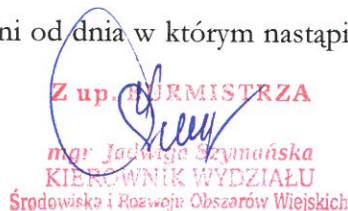 ni od dnia w którym nastąpi
Z up. BURMISTRZA
mgr Jadwiga Szymańska
KIEROWNIK WYDZIAŁU
Środowiska i Rozwoju Obszarów Wiejskich